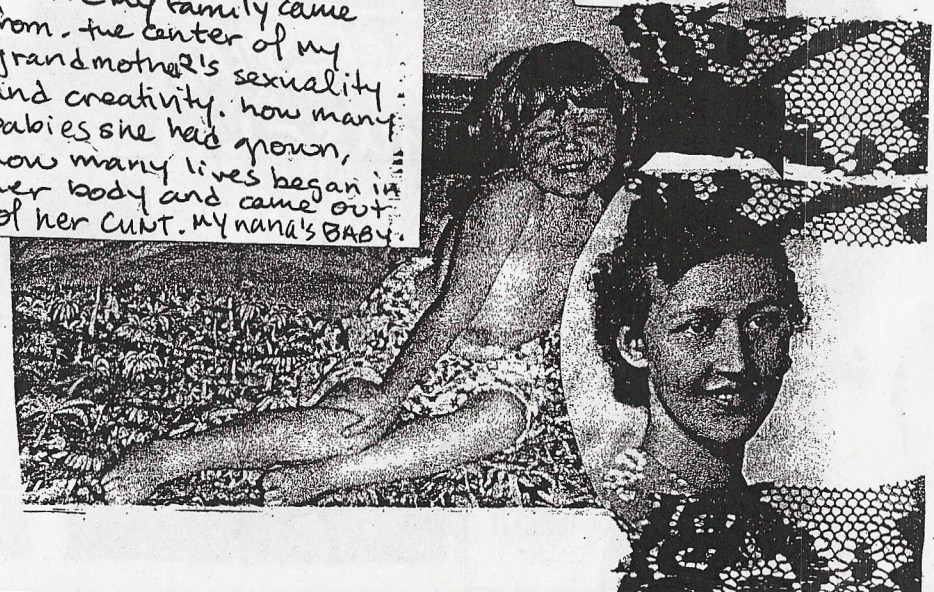 my family came
from. the center of my
grandmother's sexuality
and creativity. how many
babies she had grown,
how many lives began in
her body and came out
of her CUNT. My nana's BABY.